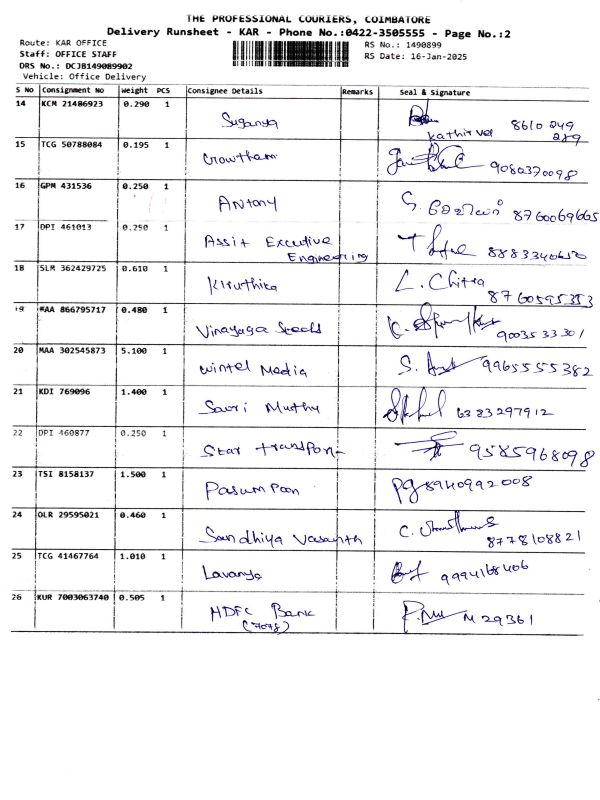 THE PROFESSIONAL COURIERS, COIMBATORE
Delivery Runsheet - KAR - Phone No.:0422-3505555 - Page No.:2
Route: KAR OFFICE
Staff: OFFICE STAFF
DRS No.: DCJB149089902
Vehicle: Office Delivery
RS No.: 1490899
RS Date: 16-Jan-2025
S No Consignment No Weight PCS Consignee Details Remarks Seal & Signature
14 KCM 21486923 0.290 1 Suganya Kathirvel 8610 249 289
15 TCG 50788084 0.195 1 Gowtham 9080370098
16 GPM 431536 0.250 1 Antony 8760069665
17 DPI 461013 0.250 1 Assit Excedive Engineering 8883340650
18 SLR 362429725 0.610 1 Kiruthika L. Chitra 8760595353
19 MAA 866795717 0.480 1 Vinayaga Steels 9003533301
20 MAA 302545873 5.100 1 Wintel Media 9965555382
21 KDI 769096 1.400 1 Sauri Muthy 6383297912
22 DPI 460877 0.250 1 Star transport 9585968098
23 TSI 8158137 1.500 1 Pasumpon 8940992008
24 OLR 29595021 0.460 1 Sandhiya Vasanth 8778108821
25 TCG 41467764 1.010 1 Lavanya 9994168406
26 KUR 7003063740 0.505 1 HDFC Bank (7078) M 29361